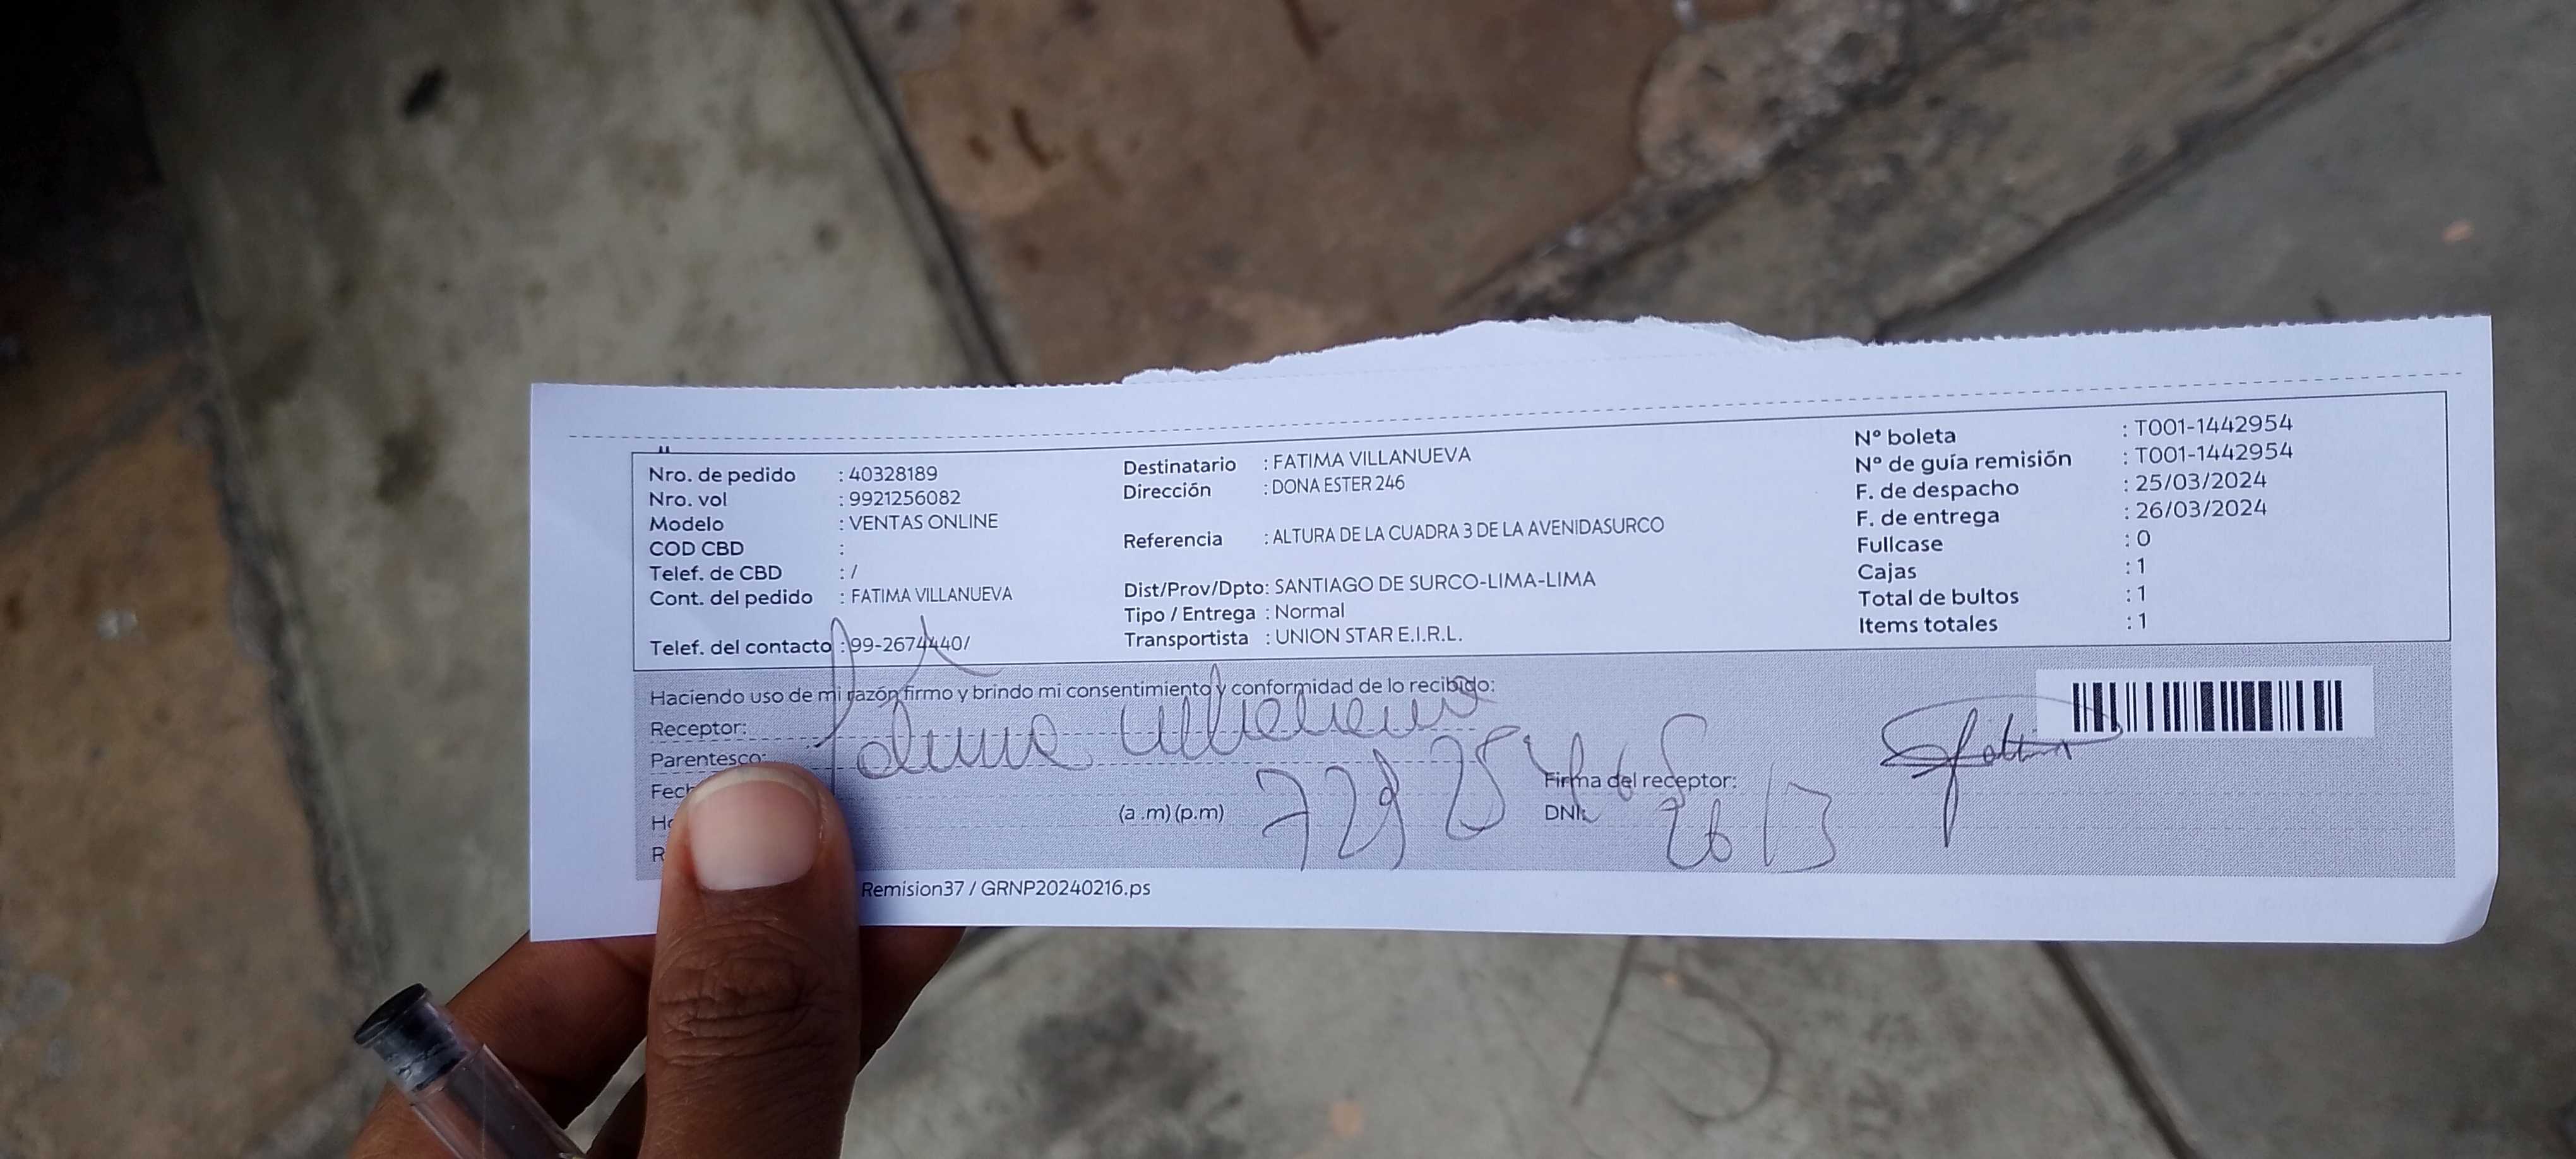 Nro. de pedido : 40328189
Nro. vol : 9921256082
Modelo : VENTAS ONLINE
COD CBD :
Telef. de CBD : /
Cont. del pedido : FATIMA VILLANUEVA
Telef. del contacto : 99-2674440/
Destinatario : FATIMA VILLANUEVA
Dirección : DONA ESTER 246
Referencia : ALTURA DE LA CUADRA 3 DE LA AVENIDASURCO
Dist/Prov/Dpto: SANTIAGO DE SURCO-LIMA-LIMA
Tipo / Entrega : Normal
Transportista : UNION STAR E.I.R.L.
Nº boleta : T001-1442954
Nº de guía remisión : T001-1442954
F. de despacho : 25/03/2024
F. de entrega : 26/03/2024
Fullcase : 0
Cajas : 1
Total de bultos : 1
Items totales : 1
Haciendo uso de mi razón firmo y brindo mi consentimiento y conformidad de lo recibido:
Receptor:
Parentesco:
(a .m) (p.m)
Firma del receptor:
DNI:
26/3
Remision37 / GRNP20240216.ps